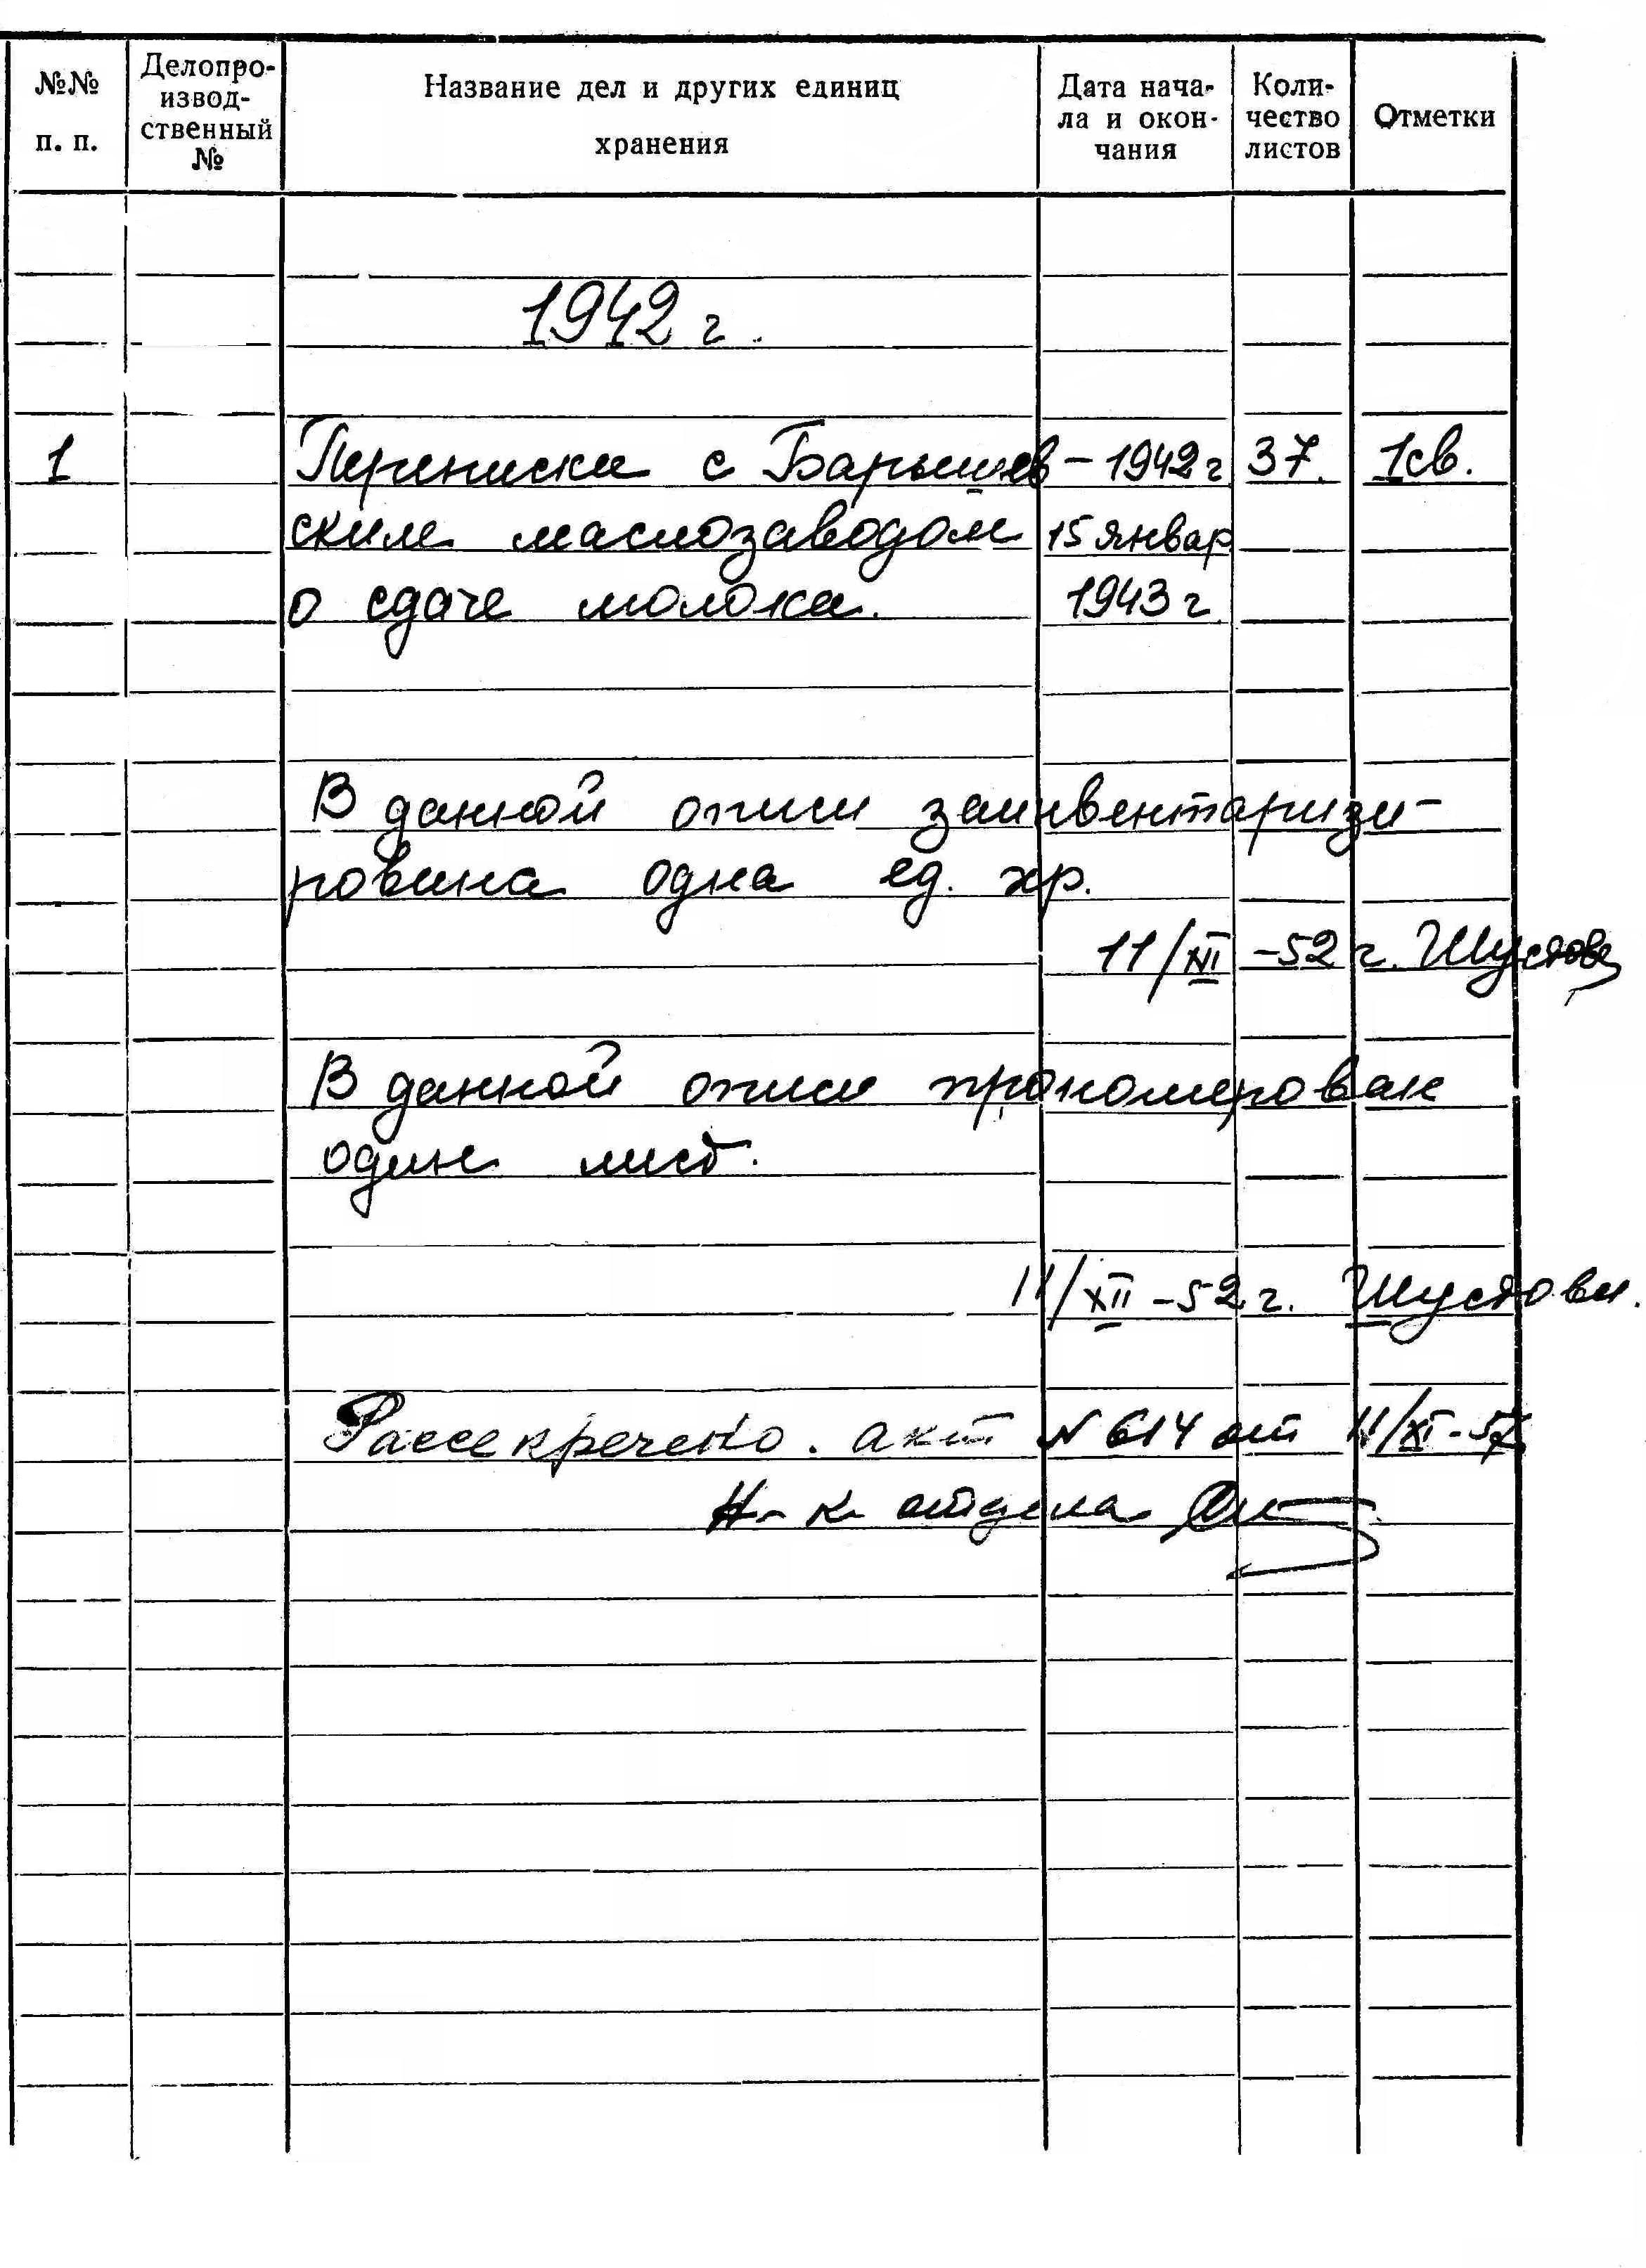 №№ п. п.
Делопро-
извод-
ственный
№
Название дел и других единиц
хранения
Дата нача-
ла и окон-
чания
Коли-
чество
листов
Отметки
1942 г.
1 Переписка с Барышев- 1942 г. 37. 1св.
ским маслозаводом 15 январ
о сдаче молока. 1943 г.
В данной описи заинвентаризи-
рована одна ед. хр.
11/XII -52 г. Шустова
В данной описи прономерован
один лист.
11/XII -52 г. Шустова.
Рассекречено. акт N 614 от 11/XI-57
Н-к отдела